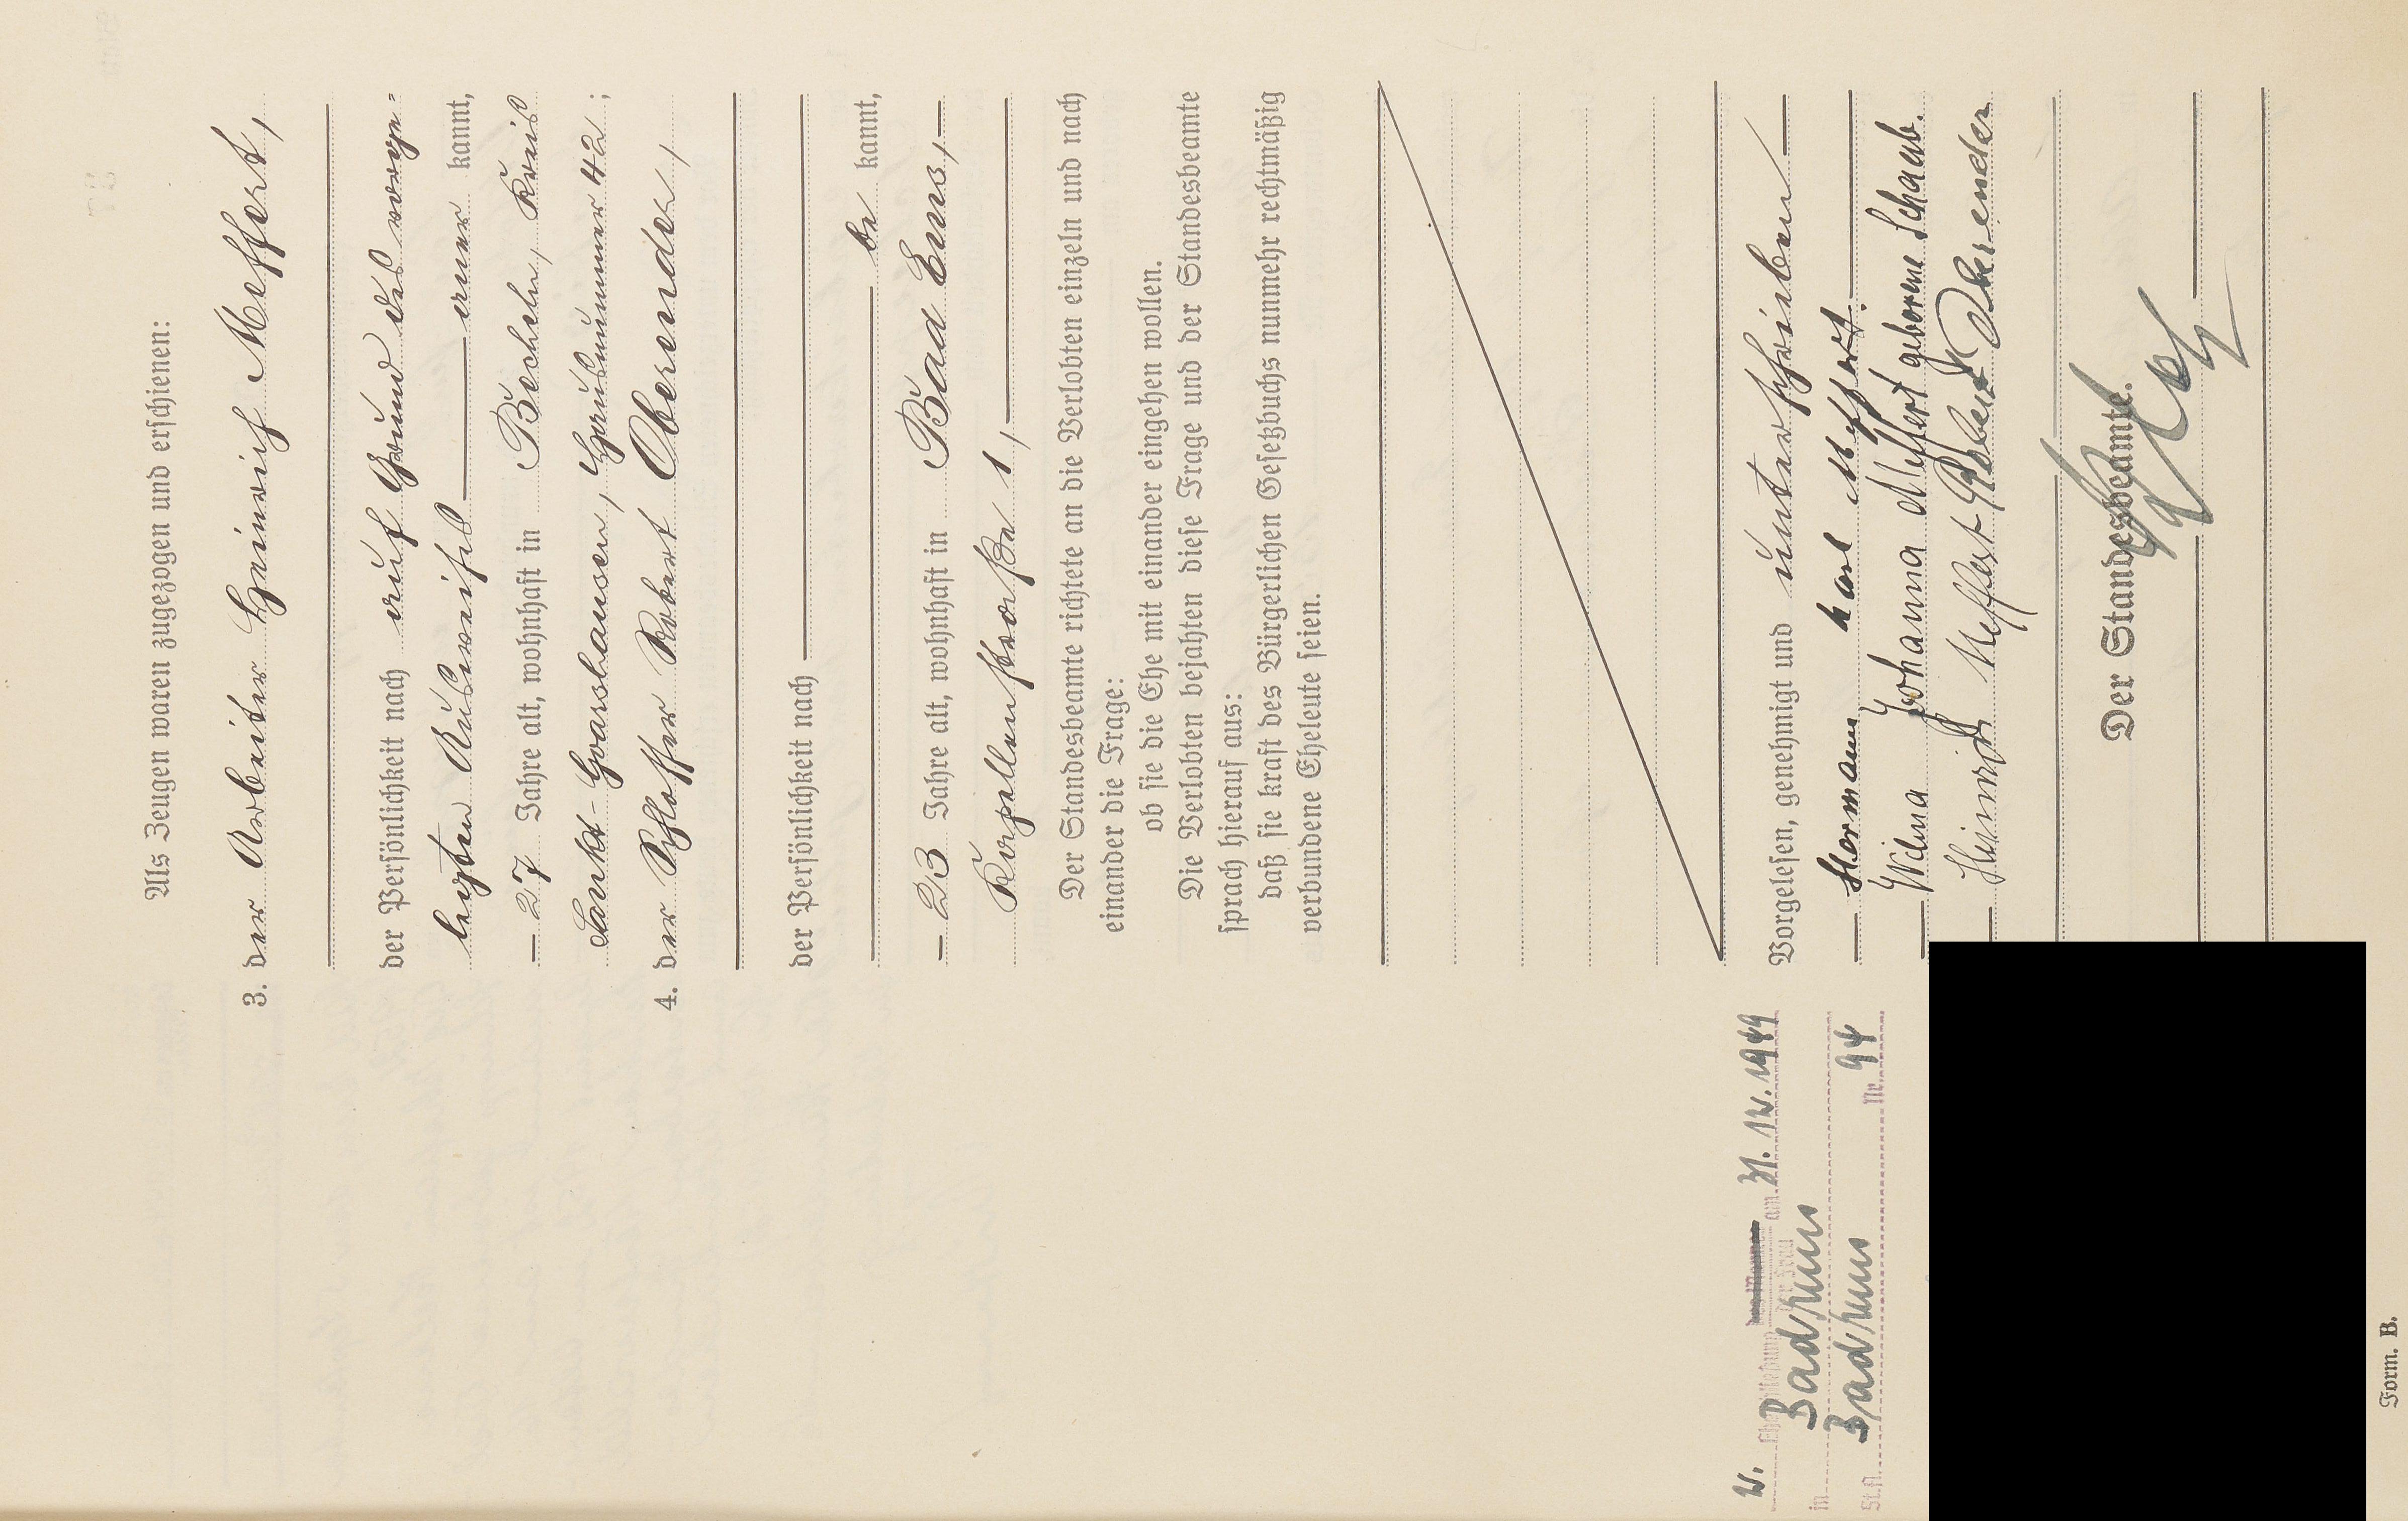 Als Zeugen waren zugezogen und erschienen:
3. der Arbeiter Heinrich Meffert,
der Persönlichkeit nach auf Grund des vorge-
legten Ausweises einer kannt,
27 Jahre alt, wohnhaft in Becheln, Kreis
Sankt Goarshausen, Hausnummer 42;
4. der Schlosser Robert Oberender,
der Persönlichkeit nach
be kannt,
23 Jahre alt, wohnhaft in Bad Ems,
Kapellenstraße 1,
Der Standesbeamte richtete an die Verlobten einzeln und nach
einander die Frage:
ob sie die Ehe mit einander eingehen wollen.
Die Verlobten bejahten diese Frage und der Standesbeamte
sprach hierauf aus:
daß sie kraft des Bürgerlichen Gesetzbuchs nunmehr rechtmäßig
verbundene Eheleute seien.
Vorgelesen, genehmigt und unterschrieben
Hermann Karl Meffert.
Wilma Johanna Meffert geborene Schaab.
Heinrich Meffert Robert Oberender
Der Standesbeamte.
W. Eheschließung des Mannes der Frau am 31.12.1949
in Bad Ems
St.A. Bad Ems Nr. 94
Form. B.